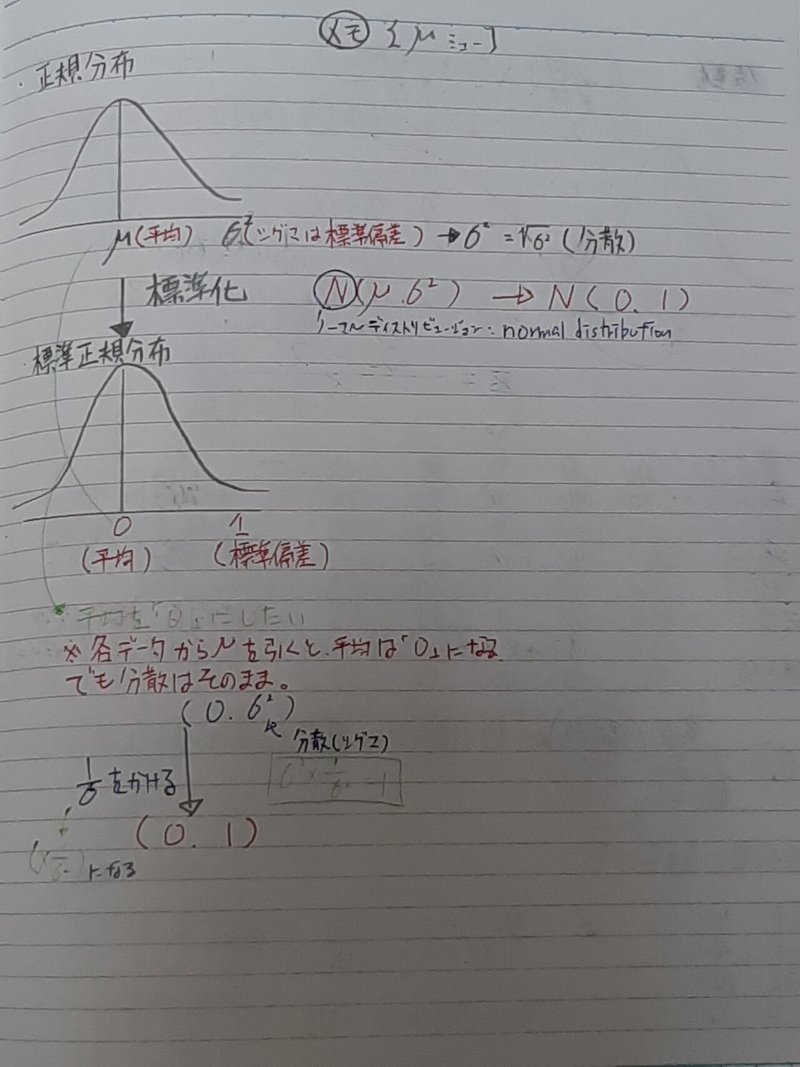 メモ {μ ミュー}
・正規分布
μ(平均) σ²(シグマは標準偏差) → σ² = √σ² (分散)
標準化 N(μ.σ²) → N(0.1)
ノーマルディストリビューション: normal distribution
・標準正規分布
0 1
(平均) (標準偏差)
平均を「0」にしたい
※各データからμを引くと、平均は「0」になる
でも分散はそのまま。
(0.σ²)
分散(シグマ)
1/σをかける
(0.1)
になる